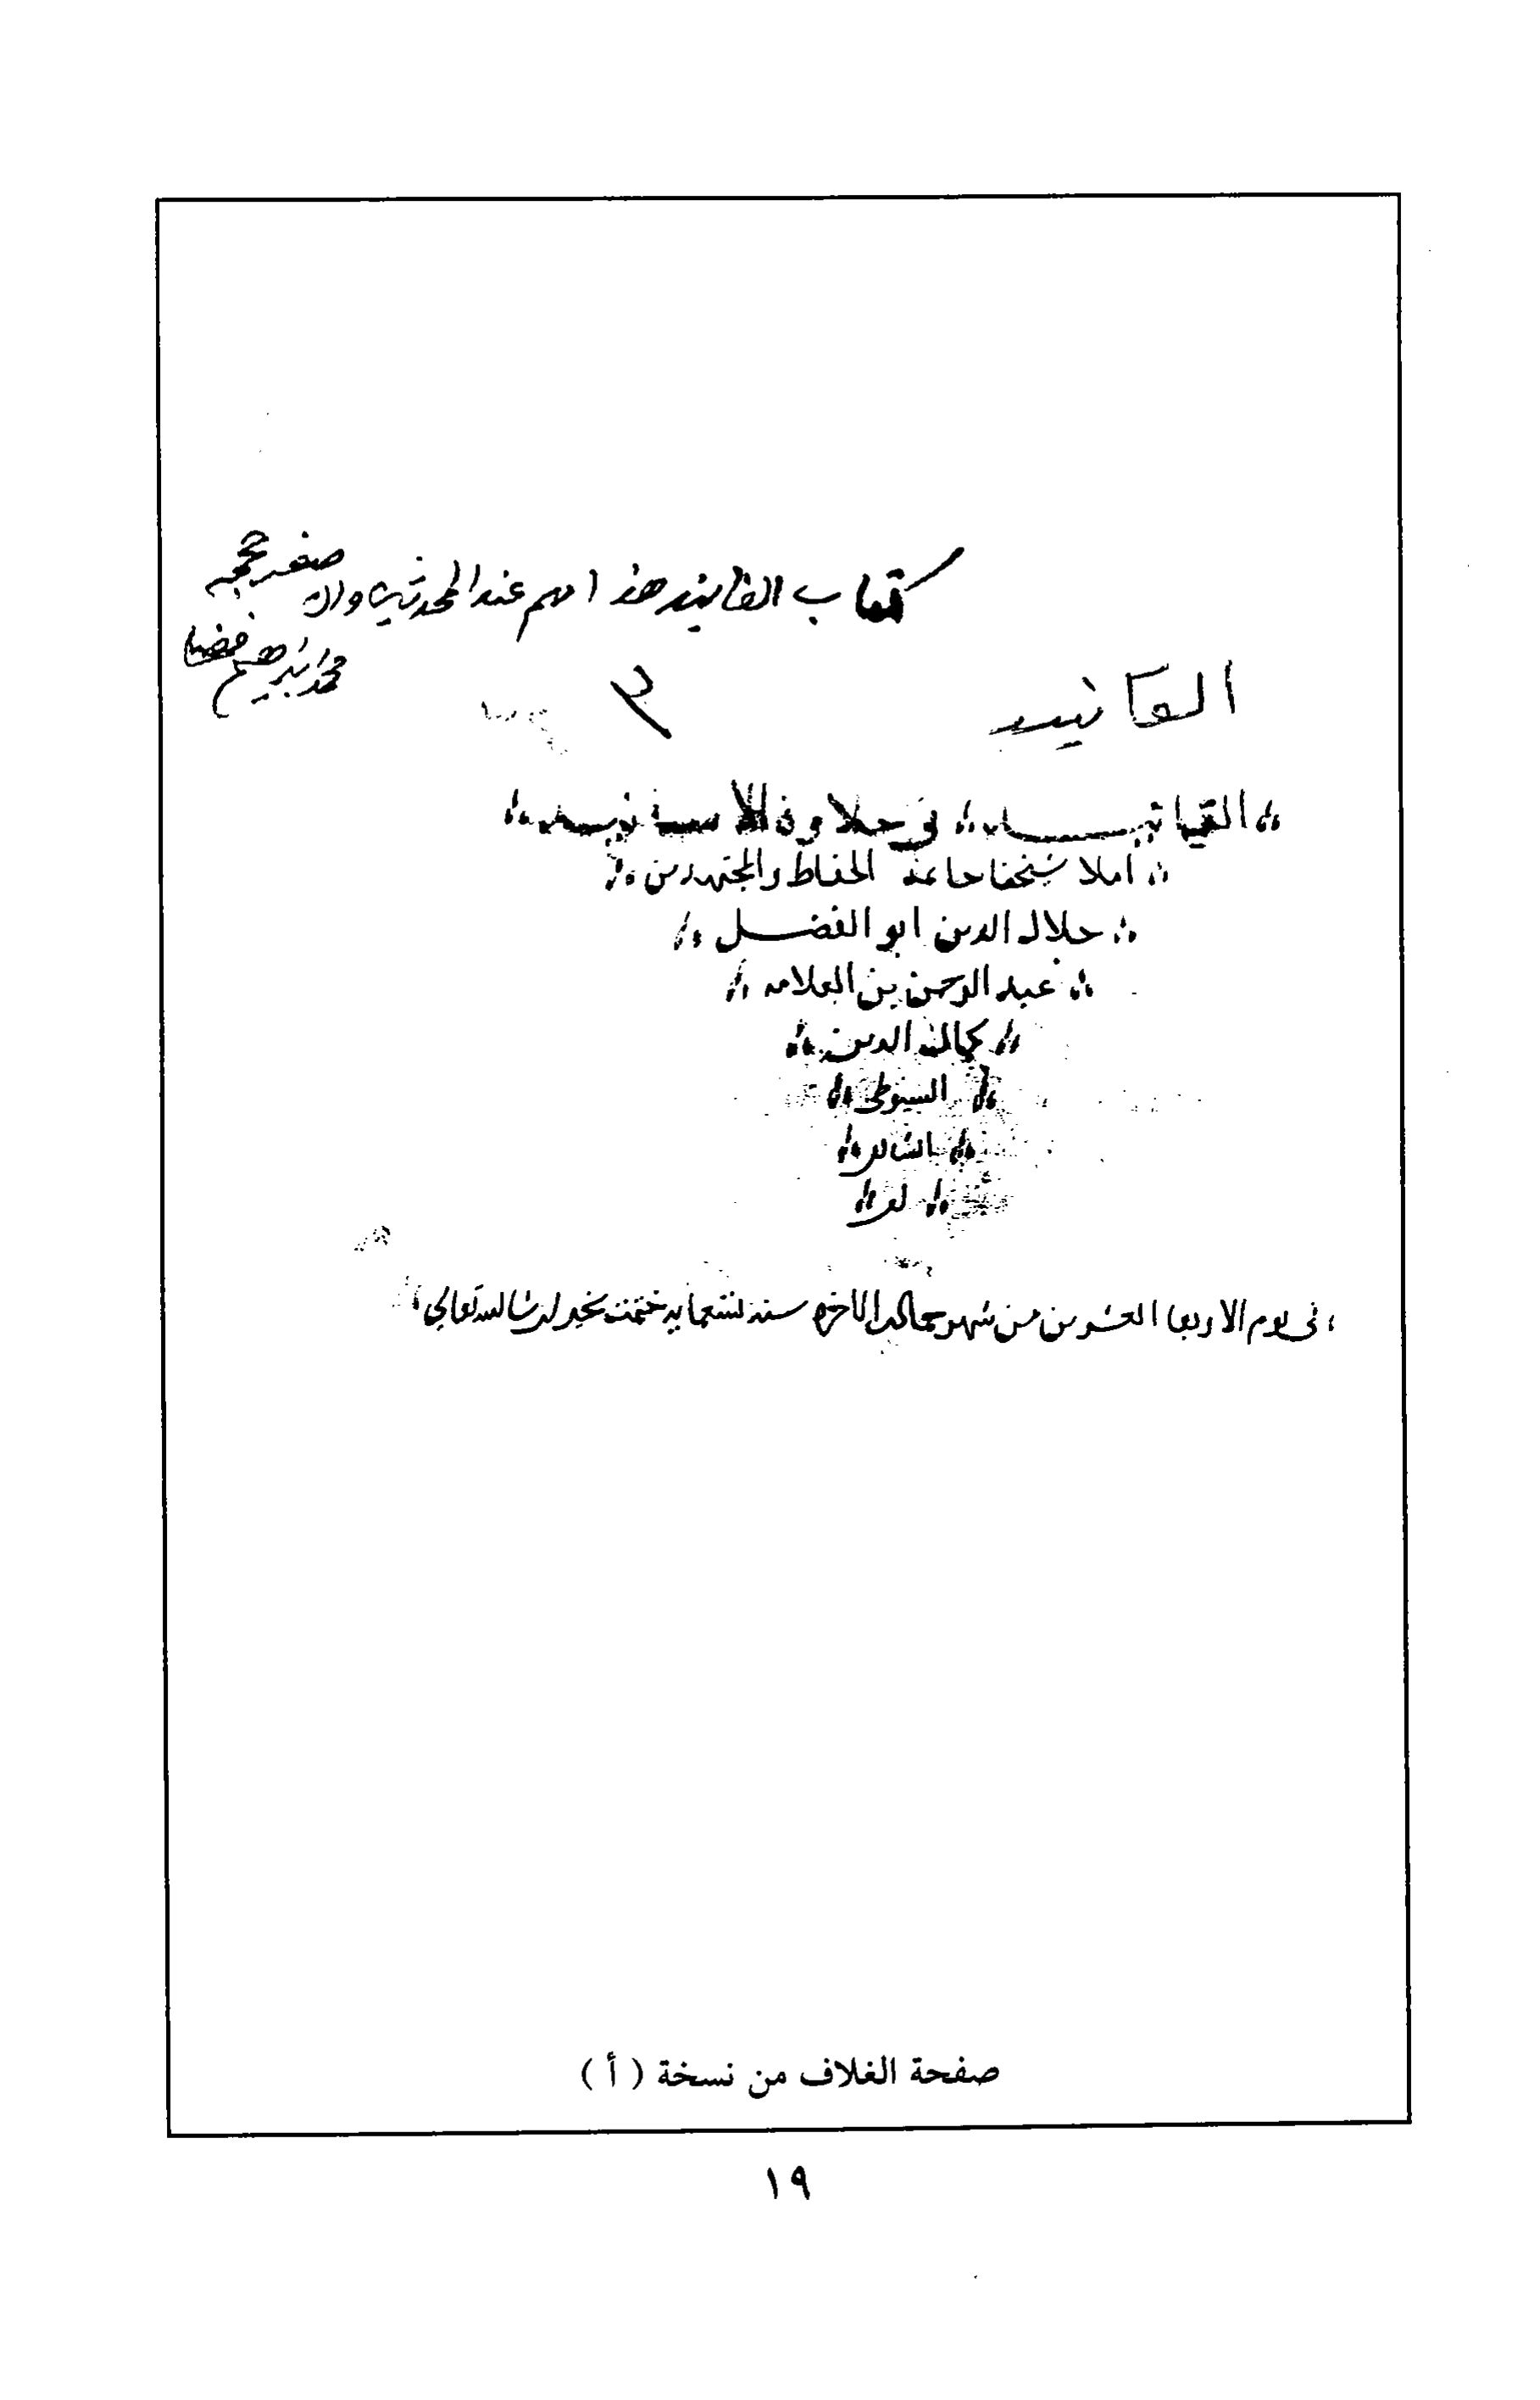 كتاب الفانيد هذا مهم عند المحدثين وان صغر حجمه
محمد ابراهيم
الفانيد
الفانيد في حلاوة الاسانيد
املا شيخنا خاتمة الحفاظ والمجتهدين
جلال الدين ابو الفضل
عبد الرحمن بن العلامه
كمال الدين
السيوطي
الشافعي
في يوم الاربعا العشرين من شهر جمادى الاخره سنه تسعمايه ختمت بخير ان شا الله تعالى
صفحة الغلاف من نسخة ( أ )
١٩